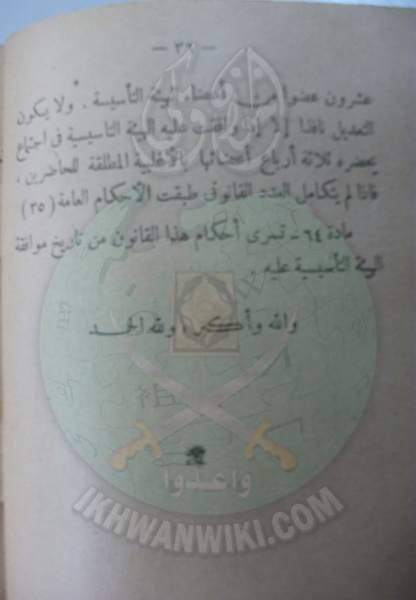 — ٣٢ —
عشرون عضوا من أعضاء الهيئة التأسيسة . ولا يكون
التعديل نافذا إلا إذا وافقت عليه الهيئة التأسيسية فى اجتماع
يحضره ثلاثة أرباع أعضائها بالأغلبية المطلقة للحاضرين ،
فاذا لم يتكامل العدد القانونى طبقت الأحكام العامة (٣٥)
مادة ٦٤ - تسرى أحكام هذا القانون من تاريخ موافقة
الهيئة التأسيسية عليه .
والله وأكبر ، ولله الحمد
واعدوا
IKHWANWIKI.COM